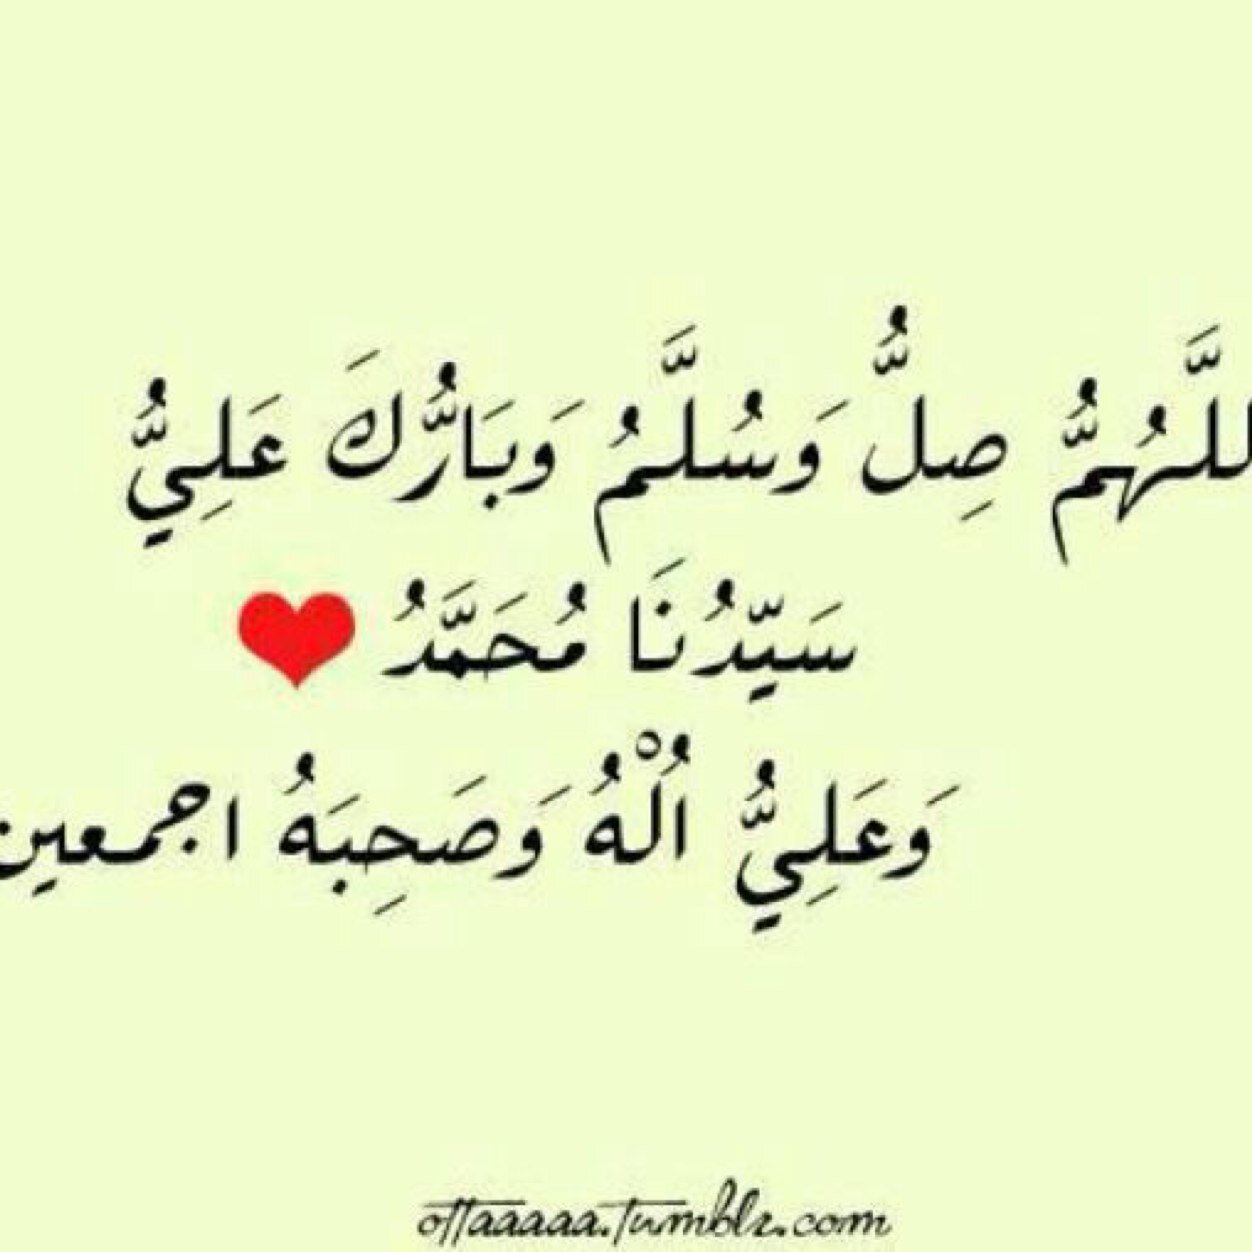 للَّهُمُّ صِلُّ وَسُلَّمُ وَبَارُّكَ عَلِيُّ
سَيِّدُنَا مُحَمَّدُ ❤
وَعَلِيُّ اُلْهُ وَصَحِبَهُ اجمعين
ottaaaaa.tumblr.com